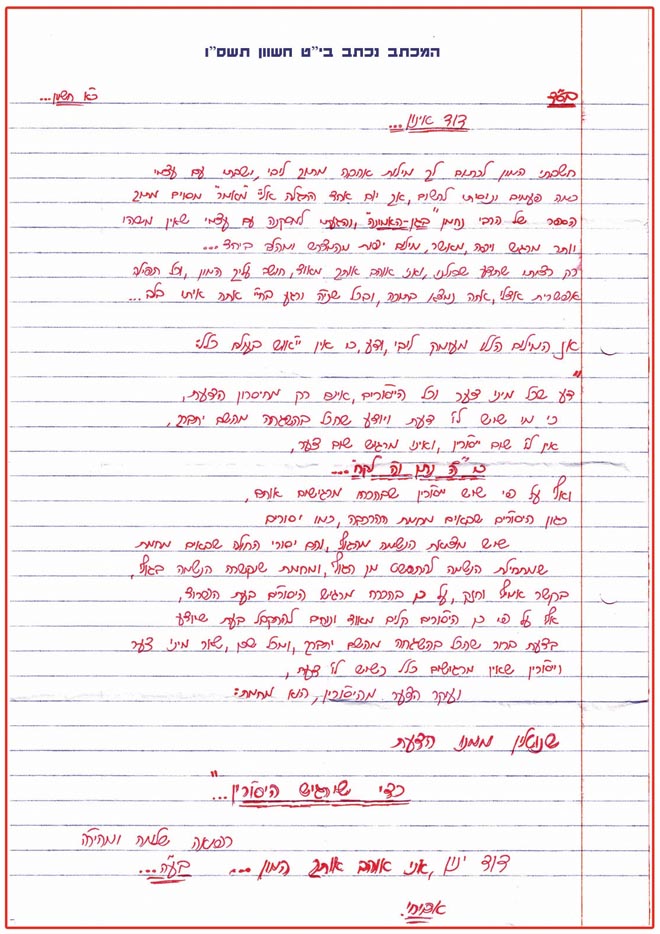 המכתב נכתב בי"ט חשוון תשס"ו
בס"ד
כ"א חשוון...
דוד אינון...
חשבתי המון לכתוב לך מילות אהבה מתוך ליבי, ישבתי עם עצמי
כמה פעמים וניסיתי לחשוב, אך יום אחד התגלה אליי "מאמר" מסוים מתוך
הספר של הרבי נחמן "בגן-האמונה", והגעתי למסקנה עם עצמי שאין משהו
יותר מרגש ויפה, מאשר, מילים יפות מהצדיק ומהלב ביחד...
רק רציתי שתדע שכולנו, ואני אוהב אותך מאוד, חושב עליך המון, וכל תפילה
אפשרית אצלי, אתה נמצא בתוכה, ובכל שניה ורגע בחיי אתה איתי בלב...
אז המילים הללו מעומק ליבי, ודע, כי אין ייאוש בעולם כלל:
"
דע שכל מיני צער וכל היסורים, אינם רק מחיסרון הדעת,
כי מי שיש לו דעת ויודע שהכל בהשגחה מהשם יתברך,
אין לו שום יסורין, ואינו מרגיש שום צער,
כי "ה' נתן וה' לקח"...
ואף על פי שיש יסורין שבהכרח מרגישים אותם,
כגון היסורים שבאים מחמת ההרכבה, כמו יסורים
שיש מצאת הנשמה מהגוף, והם יסורי החולה שבאים מחמת
שמתחילת הנשמה להתפשט מן הגוף, ומחמת שנקשרה הנשמה בגוף,
בקשר אמיץ וחזק, על כן בהכרח מרגיש היסורים בעת הפרוד,
אף על פי כן היסורים קלים מאוד ונוחים להתקבל בעת שיודע
בדעת ברור שהכל בהשגחה מהשם יתברך, ומכל שכן, שאר מיני צער
ויסורין שאין מרגישים כלל כשיש לו דעת,
ועיקר הצער מהיסורין, הוא מחמת:
שנוטלין ממנו הדעת
כדי שירגיש היסורין..."
רפואה שלמה ומהירה
דוד ינון, אני אוהב אותך המון... בע"ה...
אביחי.